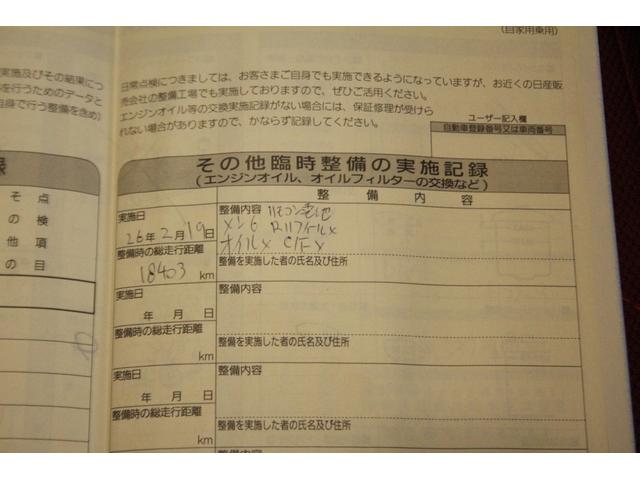 (自家用乗用)
実施及びその結果につ
を行うためのデータと
自身で行う整備を含め)
日常点検につきましては、お客さまご自身でも実施できるようになっていますが、お近くの日産販
売会社の整備工場でも実施しておりますので、ぜひご活用ください。
エンジンオイル等の交換実施記録がない場合には、保証修理が受けら
れない場合がありますので、かならず記録してください。
ユーザー記入欄
自動車登録番号又は車両番号
録
その他臨時整備の実施記録
(エンジンオイル、オイルフィルターの交換など)
整備内容
そ 点
の 検
他 項
の 目
実施日
26年2月19日
整備時の総走行距離
18403 km
整備内容 リモコン電池
オイルx
整備を実施した者の氏名及び住所
実施日
年 月 日
整備時の総走行距離
km
整備内容
整備を実施した者の氏名及び住所
実施日
年 月 日
整備時の総走行距離
km
整備内容
整備を実施した者の氏名及び住所